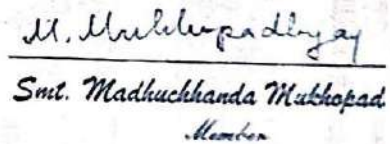 M. Mukhopadhyay
Smt. Madhuchhanda Mukhopad
Member